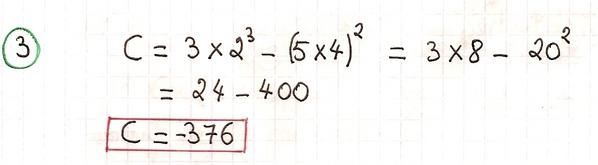 3 C = 3 × 2³ – (5 × 4)² = 3 × 8 – 20²
= 24 – 400
C = -376